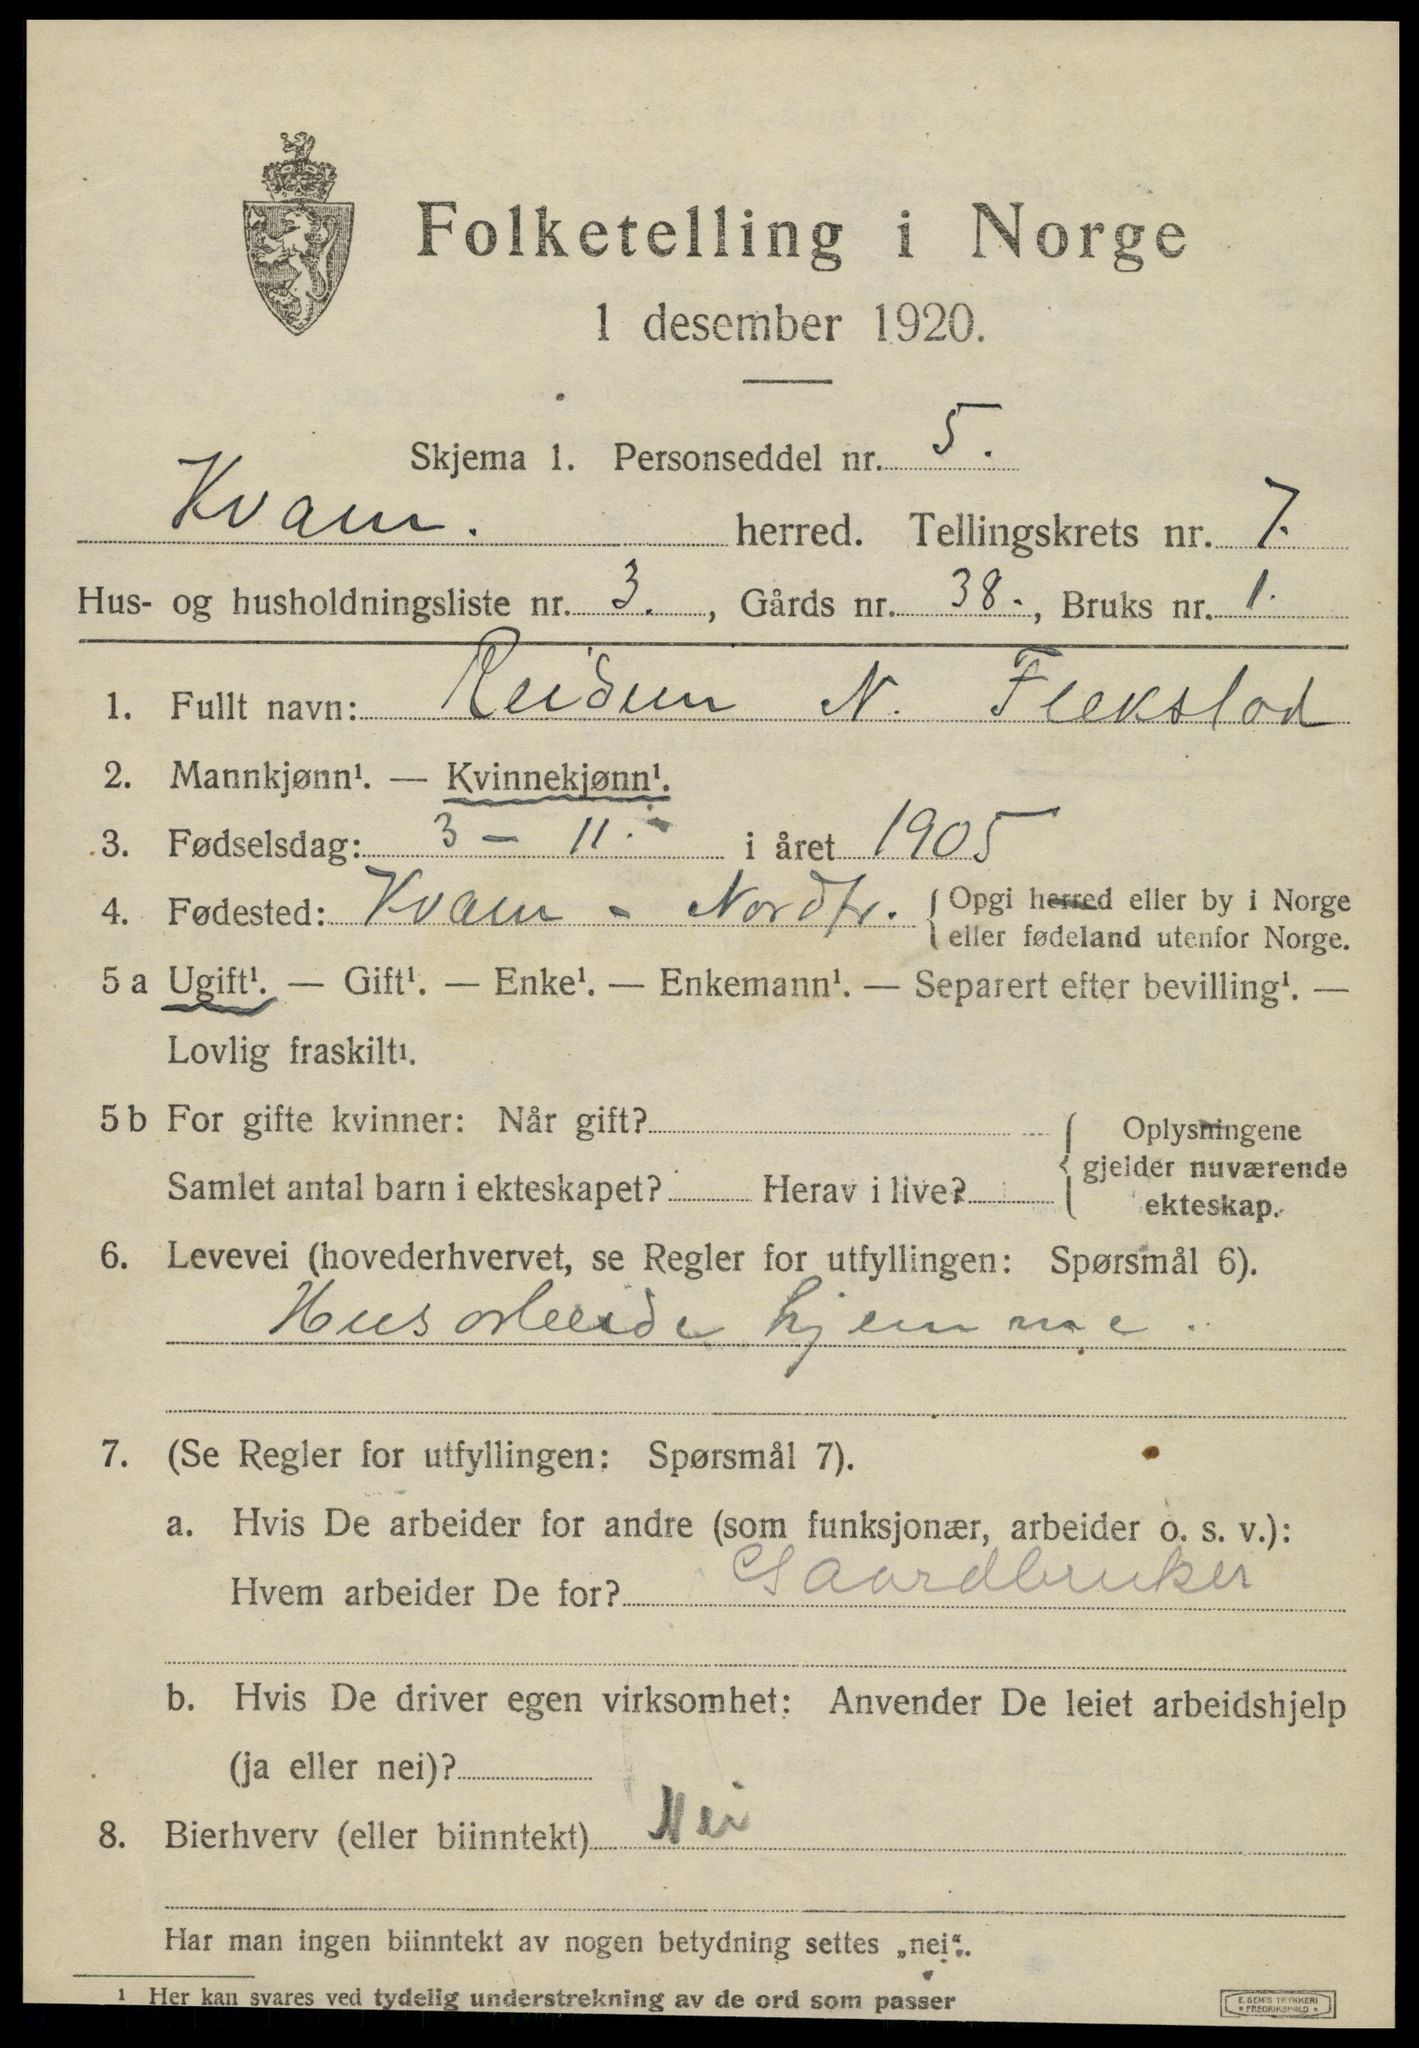 Folketelling i Norge
1 desember 1920.
Skjema 1. Personseddel nr. 5.
Kvam. herred. Tellingskrets nr. 7.
Hus- og husholdningsliste nr. 3., Gårds nr. 38., Bruks nr. 1.
1. Fullt navn: Reidun N. Flekstad
2. Mannkjønn¹. — Kvinnekjønn¹.
3. Fødselsdag: 3 - 11. i året 1905
4. Fødested: Kvam - Nordfr. { Opgi herred eller by i Norge
eller fødeland utenfor Norge.
5 a Ugift¹. — Gift¹. — Enke¹. — Enkemann¹. — Separert efter bevilling¹. —
Lovlig fraskilt¹.
5 b For gifte kvinner: Når gift? { Oplysningene
gjelder nuværende
Samlet antal barn i ekteskapet? Herav i live?
ekteskap.
6. Levevei (hovederhvervet, se Regler for utfyllingen: Spørsmål 6).
Husarbeide hjemme.
7. (Se Regler for utfyllingen: Spørsmål 7).
a. Hvis De arbeider for andre (som funksjonær, arbeider o. s. v.):
Hvem arbeider De for? Gaardbruker
b. Hvis De driver egen virksomhet: Anvender De leiet arbeidshjelp
(ja eller nei)?
8. Bierhverv (eller biinntekt) Nei
Har man ingen biinntekt av nogen betydning settes „nei“.
¹ Her kan svares ved tydelig understrekning av de ord som passer
E. SEM'S TRYKKERI
FREDRIKSHALD